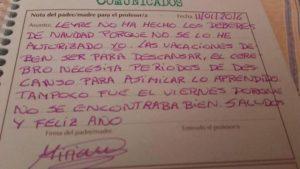 COMUNICADOS
Nota del padre/madre para el profesor/a
Fecha 11/01/2016
Asunto: LEYRE NO HA HECHO LOS DEBERES
DE NAVIDAD PORQUE NO SE LO HE
AUTORIZADO YO. LAS VACACIONES DE
BEN SER PARA DESCANSAR, EL CERE
BRO NECESITA PERIODOS DE DES
CANSO PARA ASIMILAR LO APRENDIDO.
TAMPOCO FUE EL VIERNES PORQUE
NO SE ENCONTRABA BIEN. SALUDOS
Y FELIZ AÑO
Firma del padre/madre
Enterado el profesor/a
Miriam